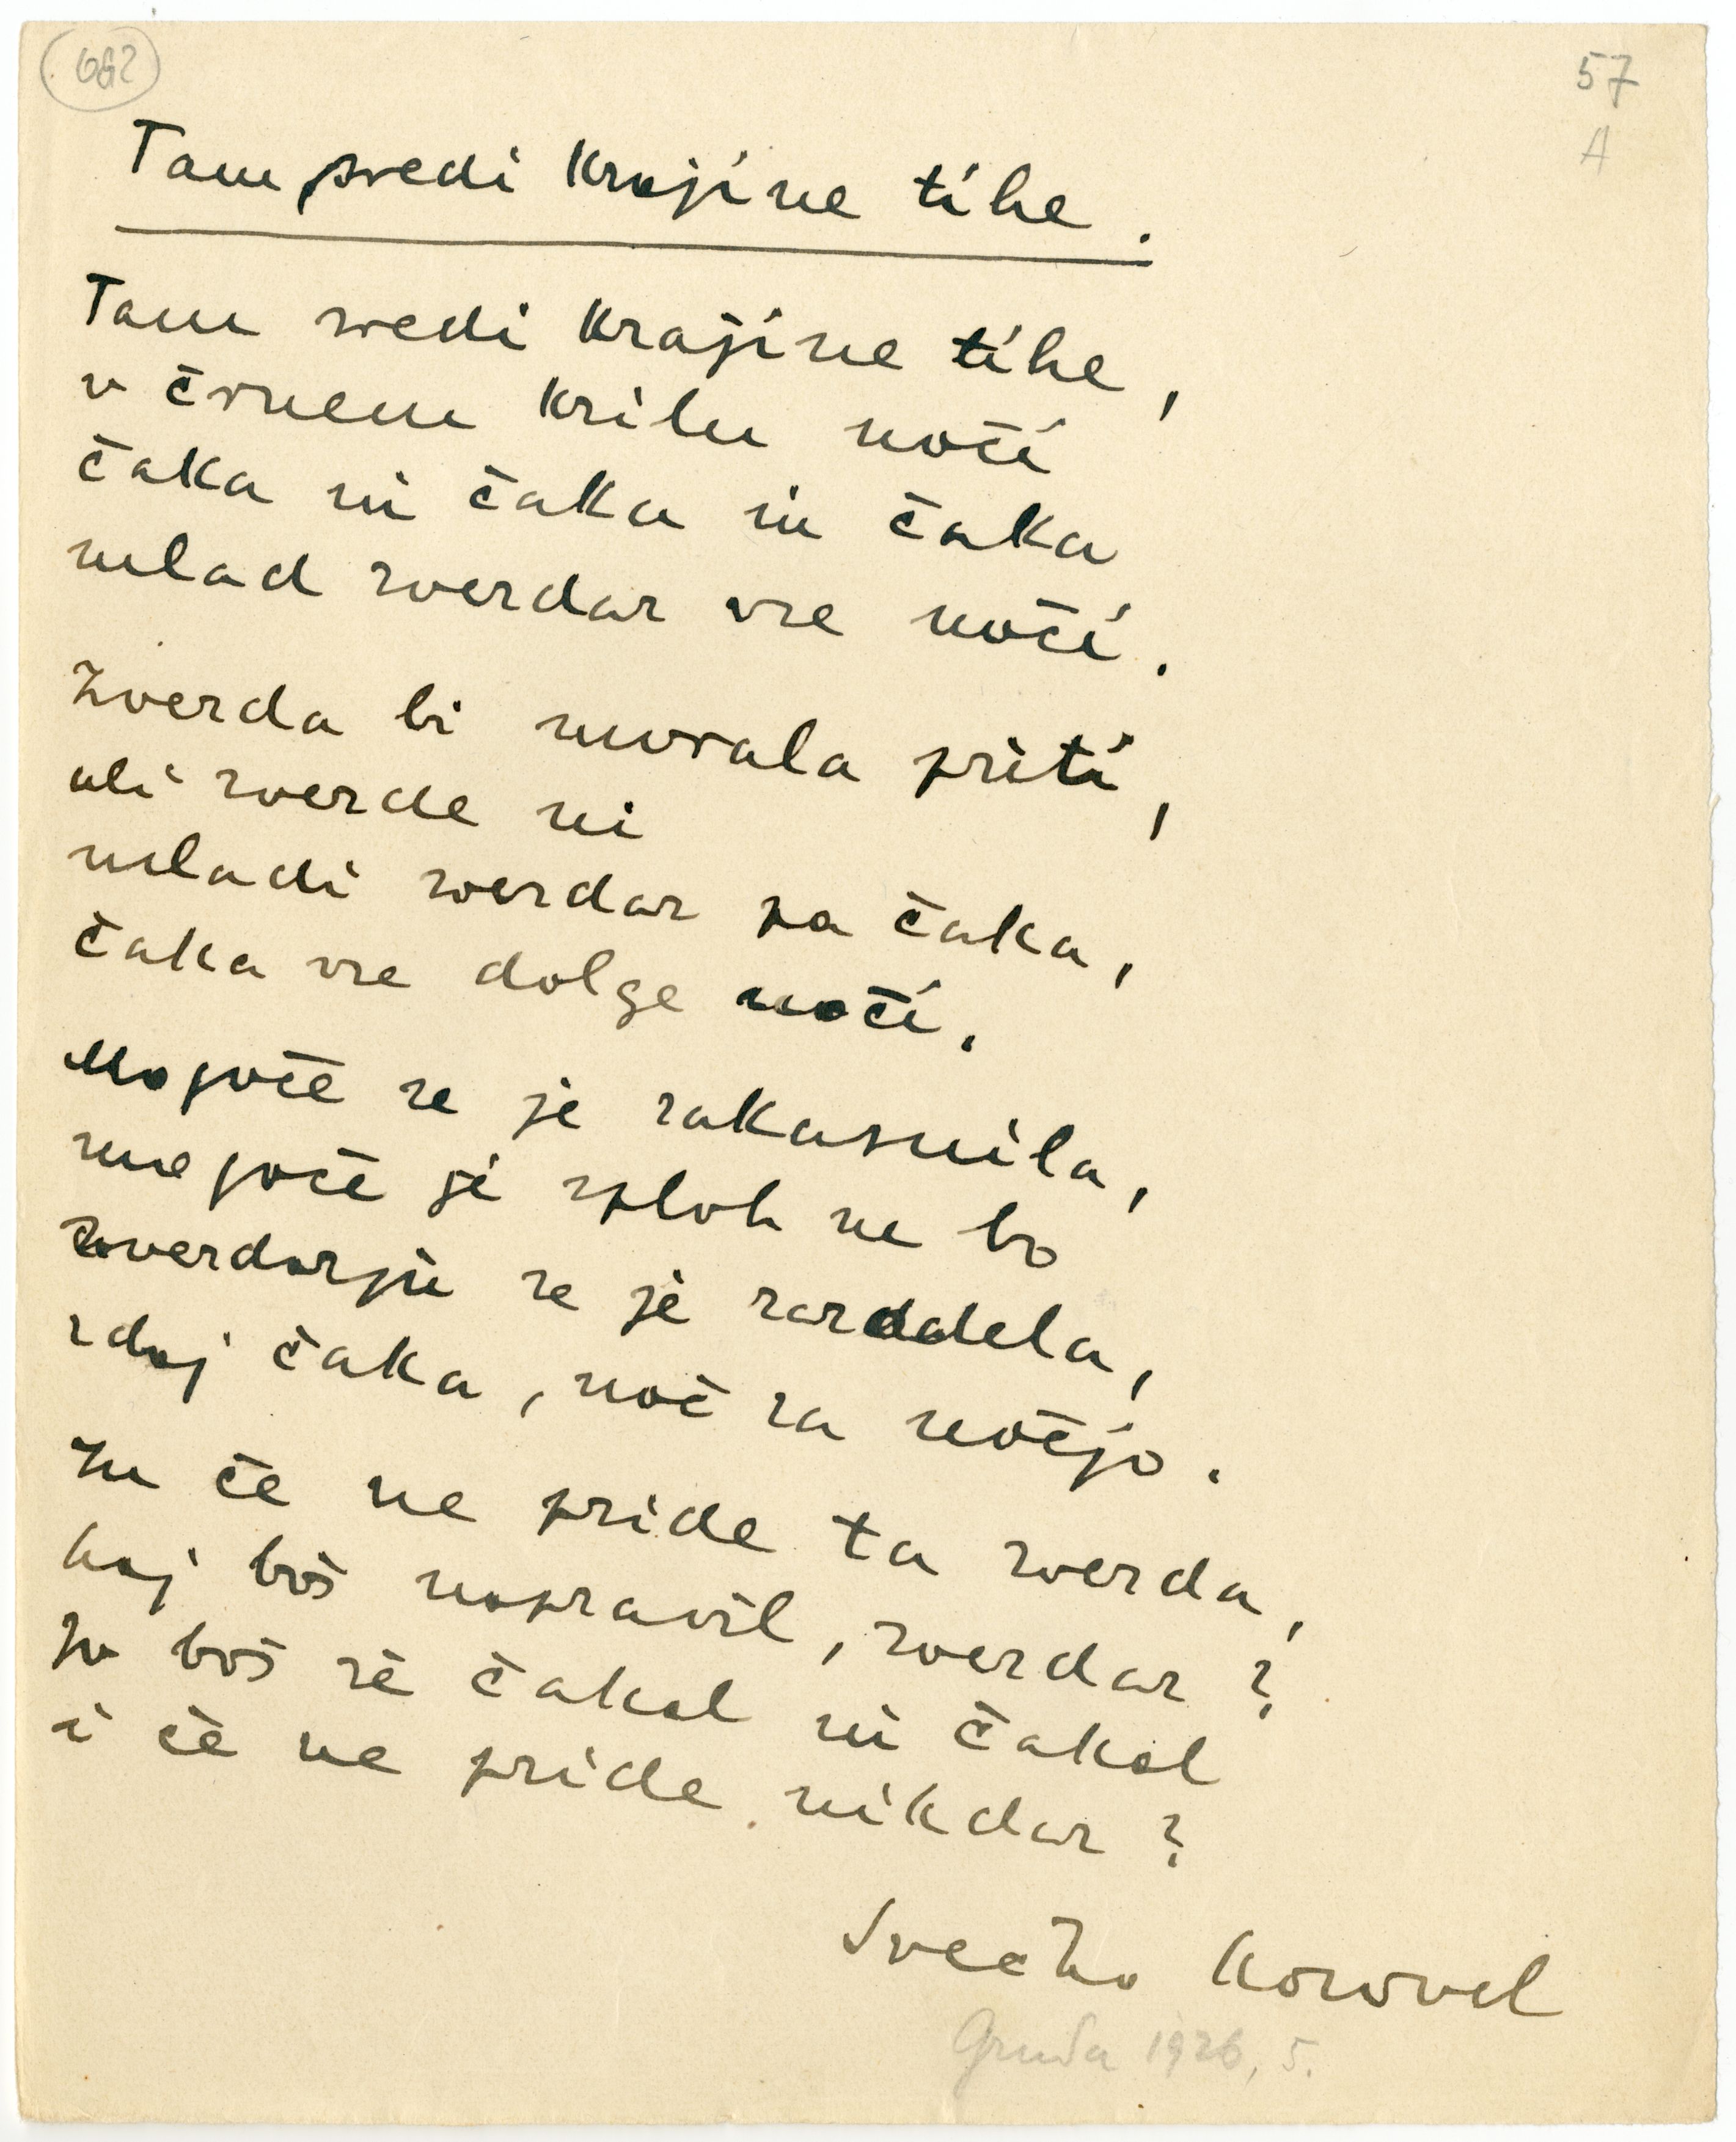 662
57
A
Tam sredi krajine tihe.
Tam sredi krajine tihe,
v črnem krilu noči
čaka in čaka in čaka
mlad zvezdar vse noči.
Zvezda bi morala priti,
ali zvezde ni
mladi zvezdar pa čaka,
čaka vse dolge noči.
Mogoče se je zakasnila,
mogoče je sploh ne bo
zvezdarju se je zazdela,
zdaj čaka, noč za nočjo.
In če ne pride ta zvezda,
kaj boš napravil, zvezdar?
Ja boš še čakal in čakal
i če ne pride nikdar?
Srečko Kosovel
Gruda 1926, 5.